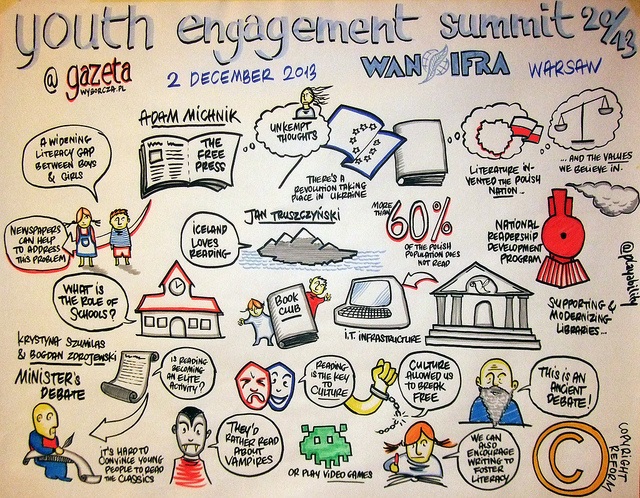 youth engagement summit 2013
@ gazeta
WYBORCZA.PL
2 DECEMBER 2013
WAN IFRA
WARSAW
A WIDENING
LITERACY GAP
BETWEEN BOYS
& GIRLS
NEWSPAPERS
CAN HELP
TO ADDRESS
THIS PROBLEM
ADAM MICHNIK
THE
FREE
PRESS
UNKEMPT
THOUGHTS
THERE'S A
REVOLUTION TAKING
PLACE IN UKRAINE
LITERATURE IN-
VENTED THE POLISH
NATION...
... AND THE VALUES
WE BELIEVE IN.
JAN TRUSZCZYŃSKI
ICELAND
LOVES
READING
MORE
THAN
60%
OF THE POLISH
POPULATION DOES
NOT READ
NATIONAL
READERSHIP
DEVELOPMENT
PROGRAM
@playability
WHAT IS
THE ROLE OF
SCHOOLS?
BOOK
CLUB
I.T. INFRASTRUCTURE
SUPPORTING &
MODERNIZING
LIBRARIES...
KRYSTYNA SZUMILAS
& BOGDAN ZDROJEWSKI
MINISTER'S
DEBATE
IS READING
BECOMING
AN ELITE
ACTIVITY?
READING
IS THE KEY
TO
CULTURE
CULTURE
ALLOWED US
TO BREAK
FREE
THIS IS AN
ANCIENT
DEBATE!
IT'S HARD TO
CONVINCE YOUNG
PEOPLE TO READ
THE CLASSICS
THEY'D
RATHER READ
ABOUT
VAMPIRES
OR PLAY VIDEO GAMES
WE CAN
ALSO
ENCOURAGE
WRITING TO
FOSTER
LITERACY
C
COPYRIGHT
REFORM